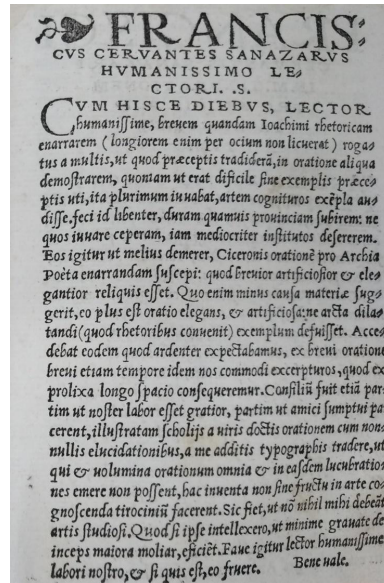 FRANCIS⸗
CVS CERVANTES SANAZARVS
HVMANISSIMO LE⸗
CTORI. .S.
CVM HISCE DIEBVS, LECTOR
humanissime, brevem quandam Ioachimi rhetoricam
enarrarem (longiorem enim per ocium non licuerat) roga⸗
tus a multis, ut quod præceptis tradiderã, in oratione aliqua
demostrarem, quoniam ut erat dificile sine exemplis præce⸗
ptis uti, ita plurimum iuvabat, artem cognituros exẽpla au⸗
disse. feci id libenter, duram quamuis prouinciam subirem: ne
quos iuuare ceperam, iam mediocriter institutos desererem.
Eos igitur ut melius demerer, Ciceronis orationẽ pro Archia
Poëta enarrandam suscepi: quod brevior artificiosior & ele⸗
gantior reliquis esset. Quo enim minus causa materiæ sug⸗
gerit, eo plus est oratio elegans, & artificiosa: ne arcta dila⸗
tandi (quod rhetoribus convenit) exemplum defuisset. Acce⸗
debat eodem quod ardenter expectabamus, ex brevi oratione
brevi etiam tempore idem nos commodi excerpturos, quod ex
prolixa longo spacio consequeremur. Consiliũ fuit etiã par⸗
tim ut noster labor esset gratior, partim ut amici sumptui pa
cerent, illustratam scholijs a viris doctis orationem cum non⸗
nullis elucidationibus, a me additis typographis tradere, ut
qui & uolumina orationum omnia & in easdem lucubratio⸗
nes emere non possent, hac inventa non sine fructu in arte co⸗
gnoscenda tirociniũ facerent. Sic fiet, ut nõ nihil mihi debeãt
artis studiosi. Quod si ipse intellexero, ut minime gravate de
inceps maiora moliar, efficiẽt. Faue igitur lector humanissime
labori nostro, & si quis est, eo fruere. Bene vale.